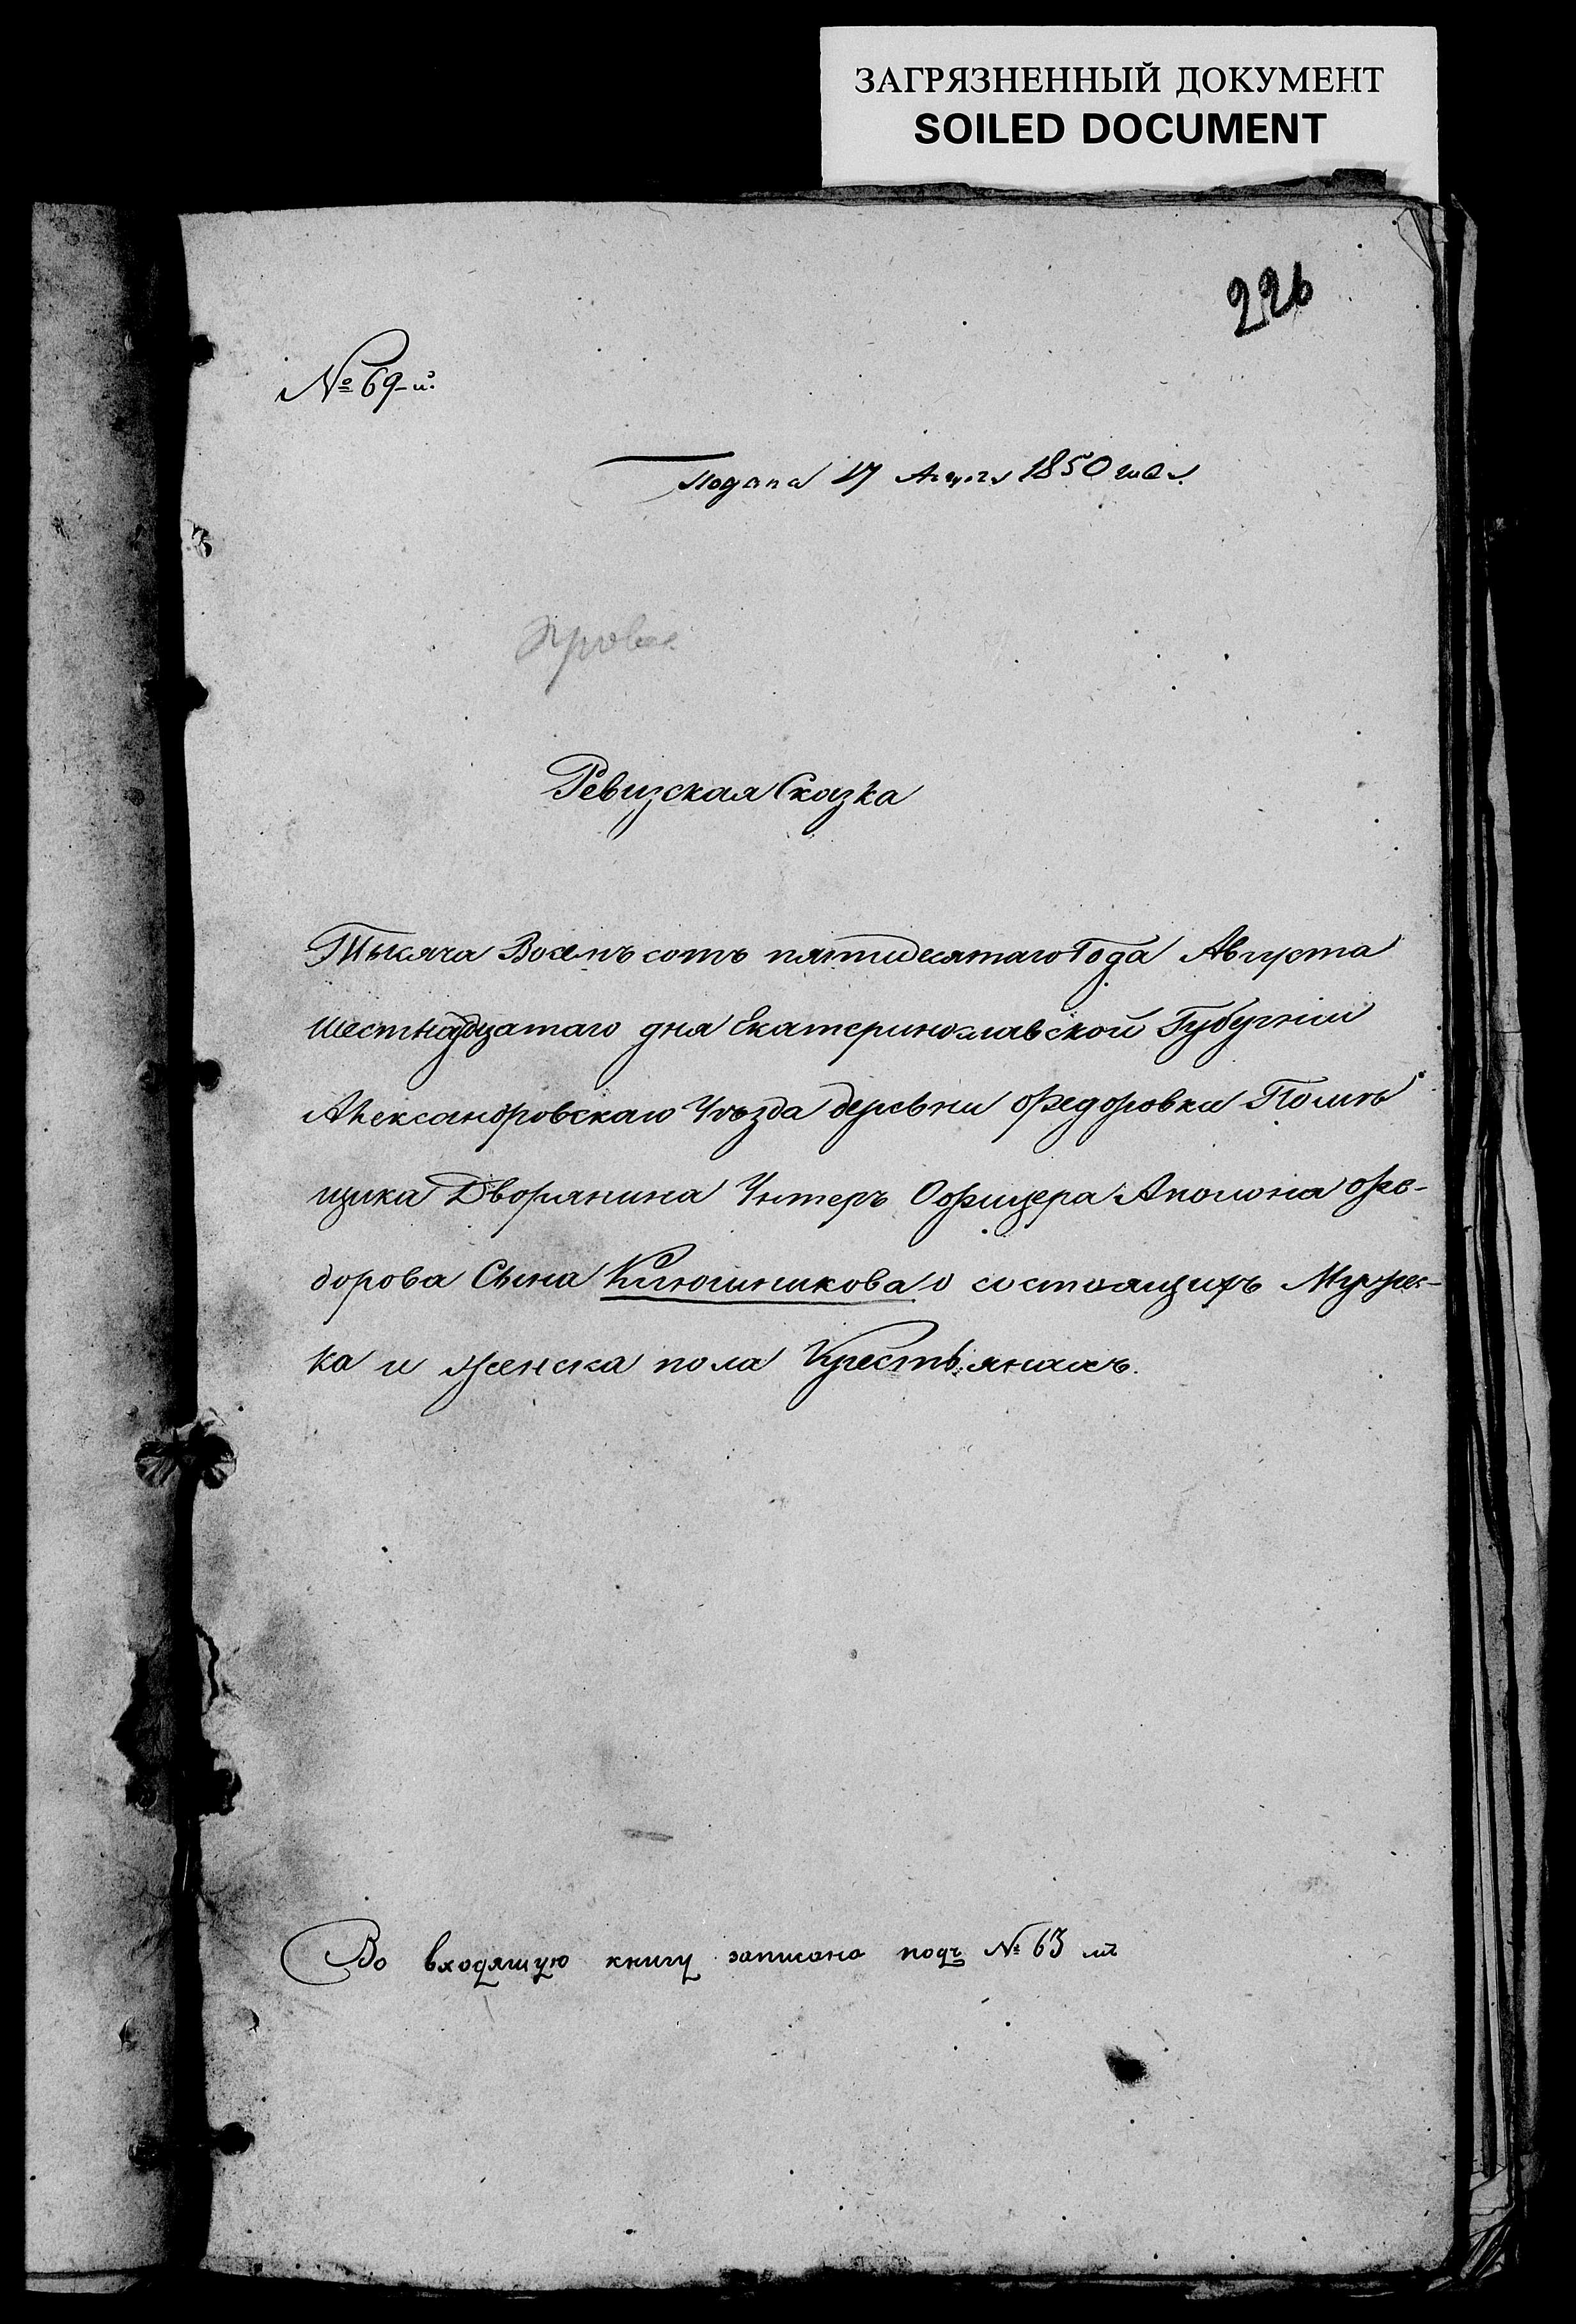 ЗАГРЯЗНЕННЫЙ ДОКУМЕНТ
SOILED DOCUMENT
226
№ 69-й.
Подана 17 Августа 1850 года.
Ревизская Сказка
Тысяча Восемъ сотъ пятидесятаго Года Августа
шестнадцатаго дня Екатеринославской Губерніи
Александровскаго Уѣзда деревни Федоровки Помѣ
щика Дворянина Унтеръ Офицера Аполона Фе-
дорова Сына Клюшникова о состоящихъ Мужес-
ка и женска пола Крестьянахъ.
Во входящую книгу записана подъ № 63 мъ